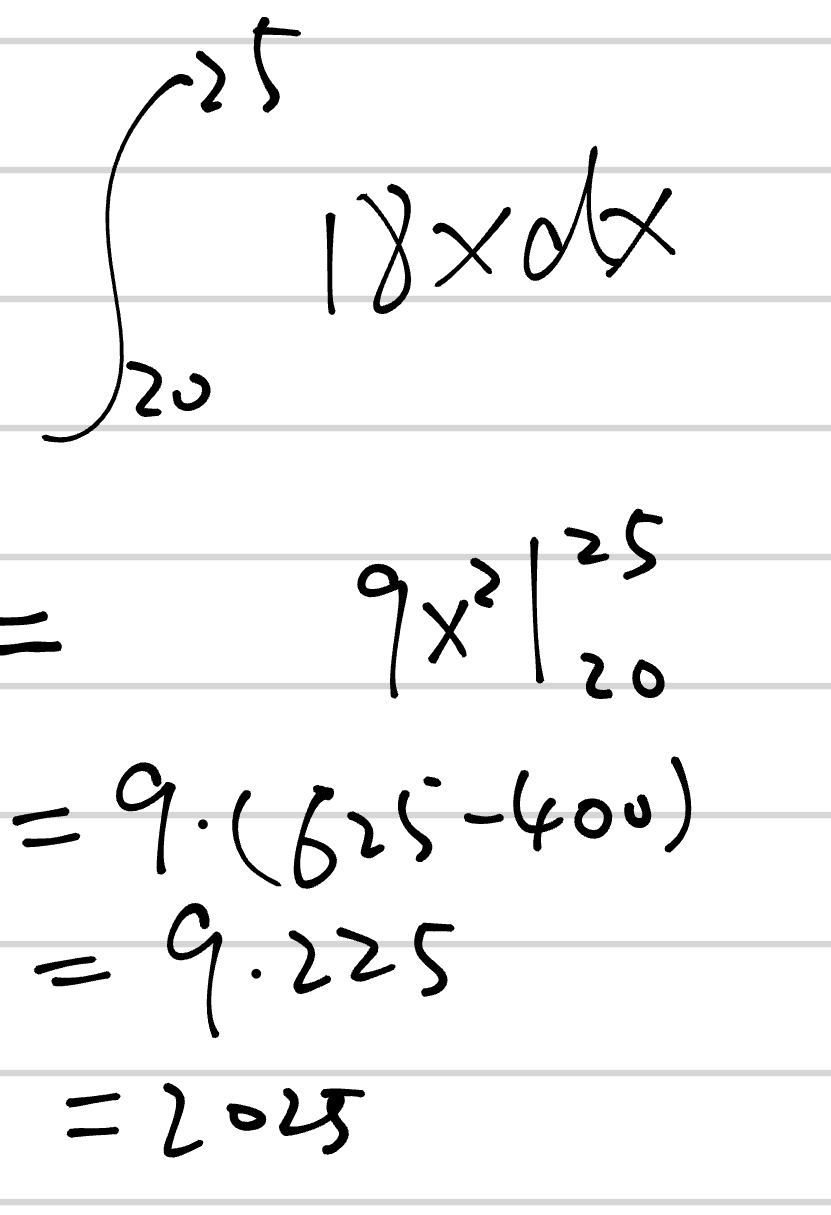 ∫₂₀²⁵ 18x dx
= 9x² |₂₀²⁵
= 9·(625-400)
= 9·225
= 2025